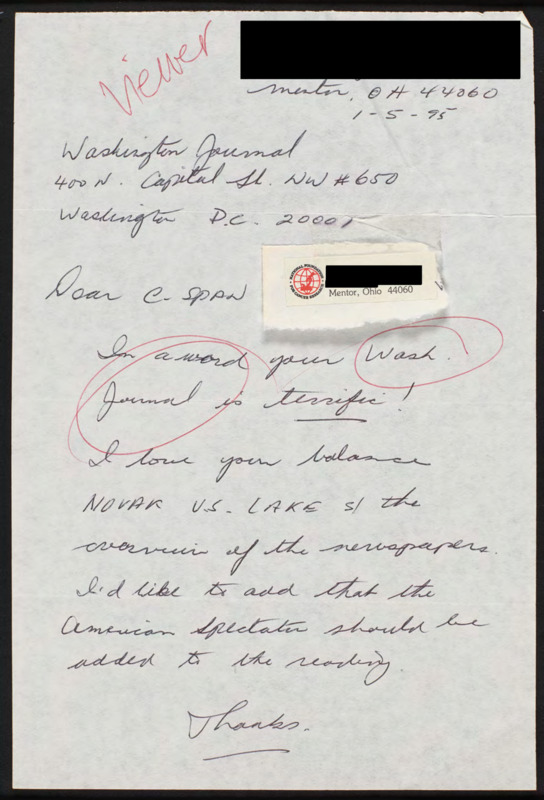 Viewer
Mentor, OH 44060
1-5-95
Washington Journal
400 N. Capital St. NW #650
Washington D.C. 20001
Mentor, Ohio 44060
Dear C-SPAN
In a word your Wash.
Journal is terrific!
I love your balance
NOVAK VS. LAKE & the
overview of the newspapers.
I'd like to add that the
American Spectator should be
added to the reading.
Thanks.